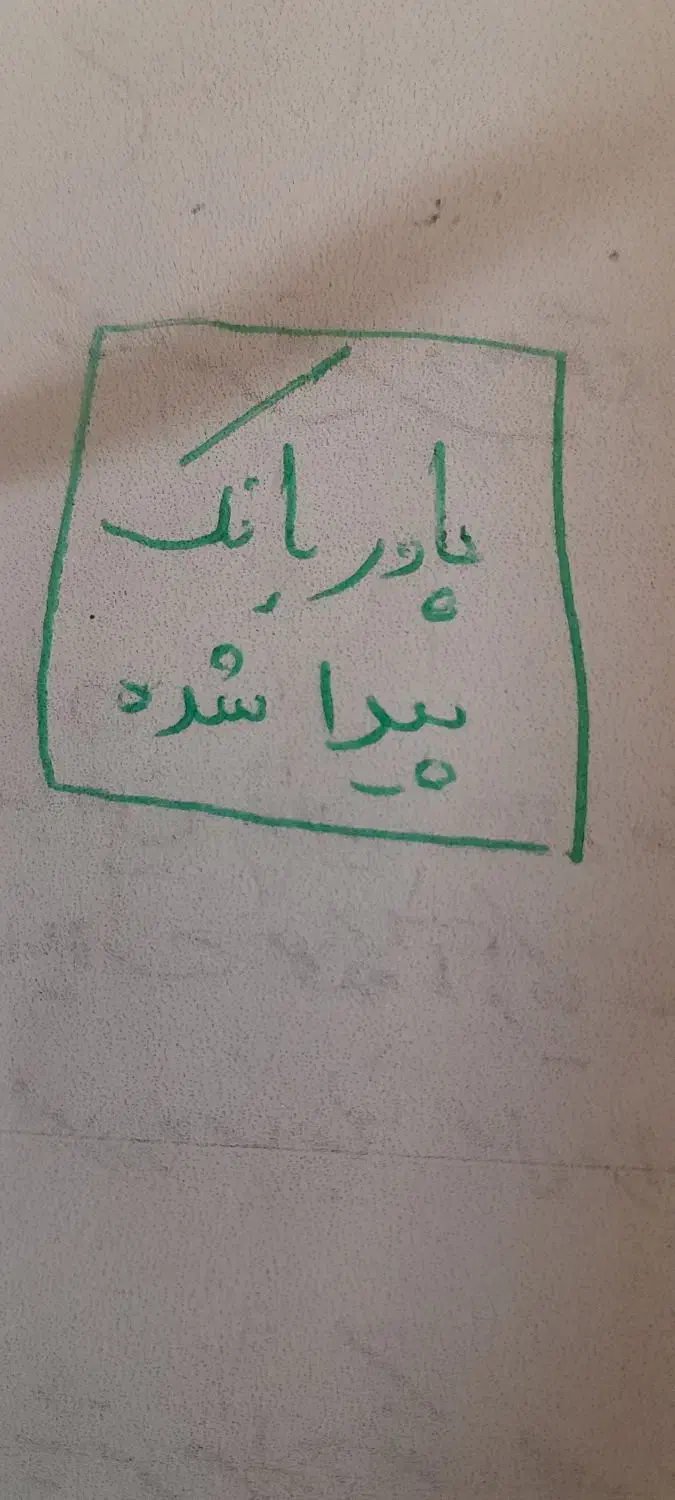 پاور بانک
پیدا شده